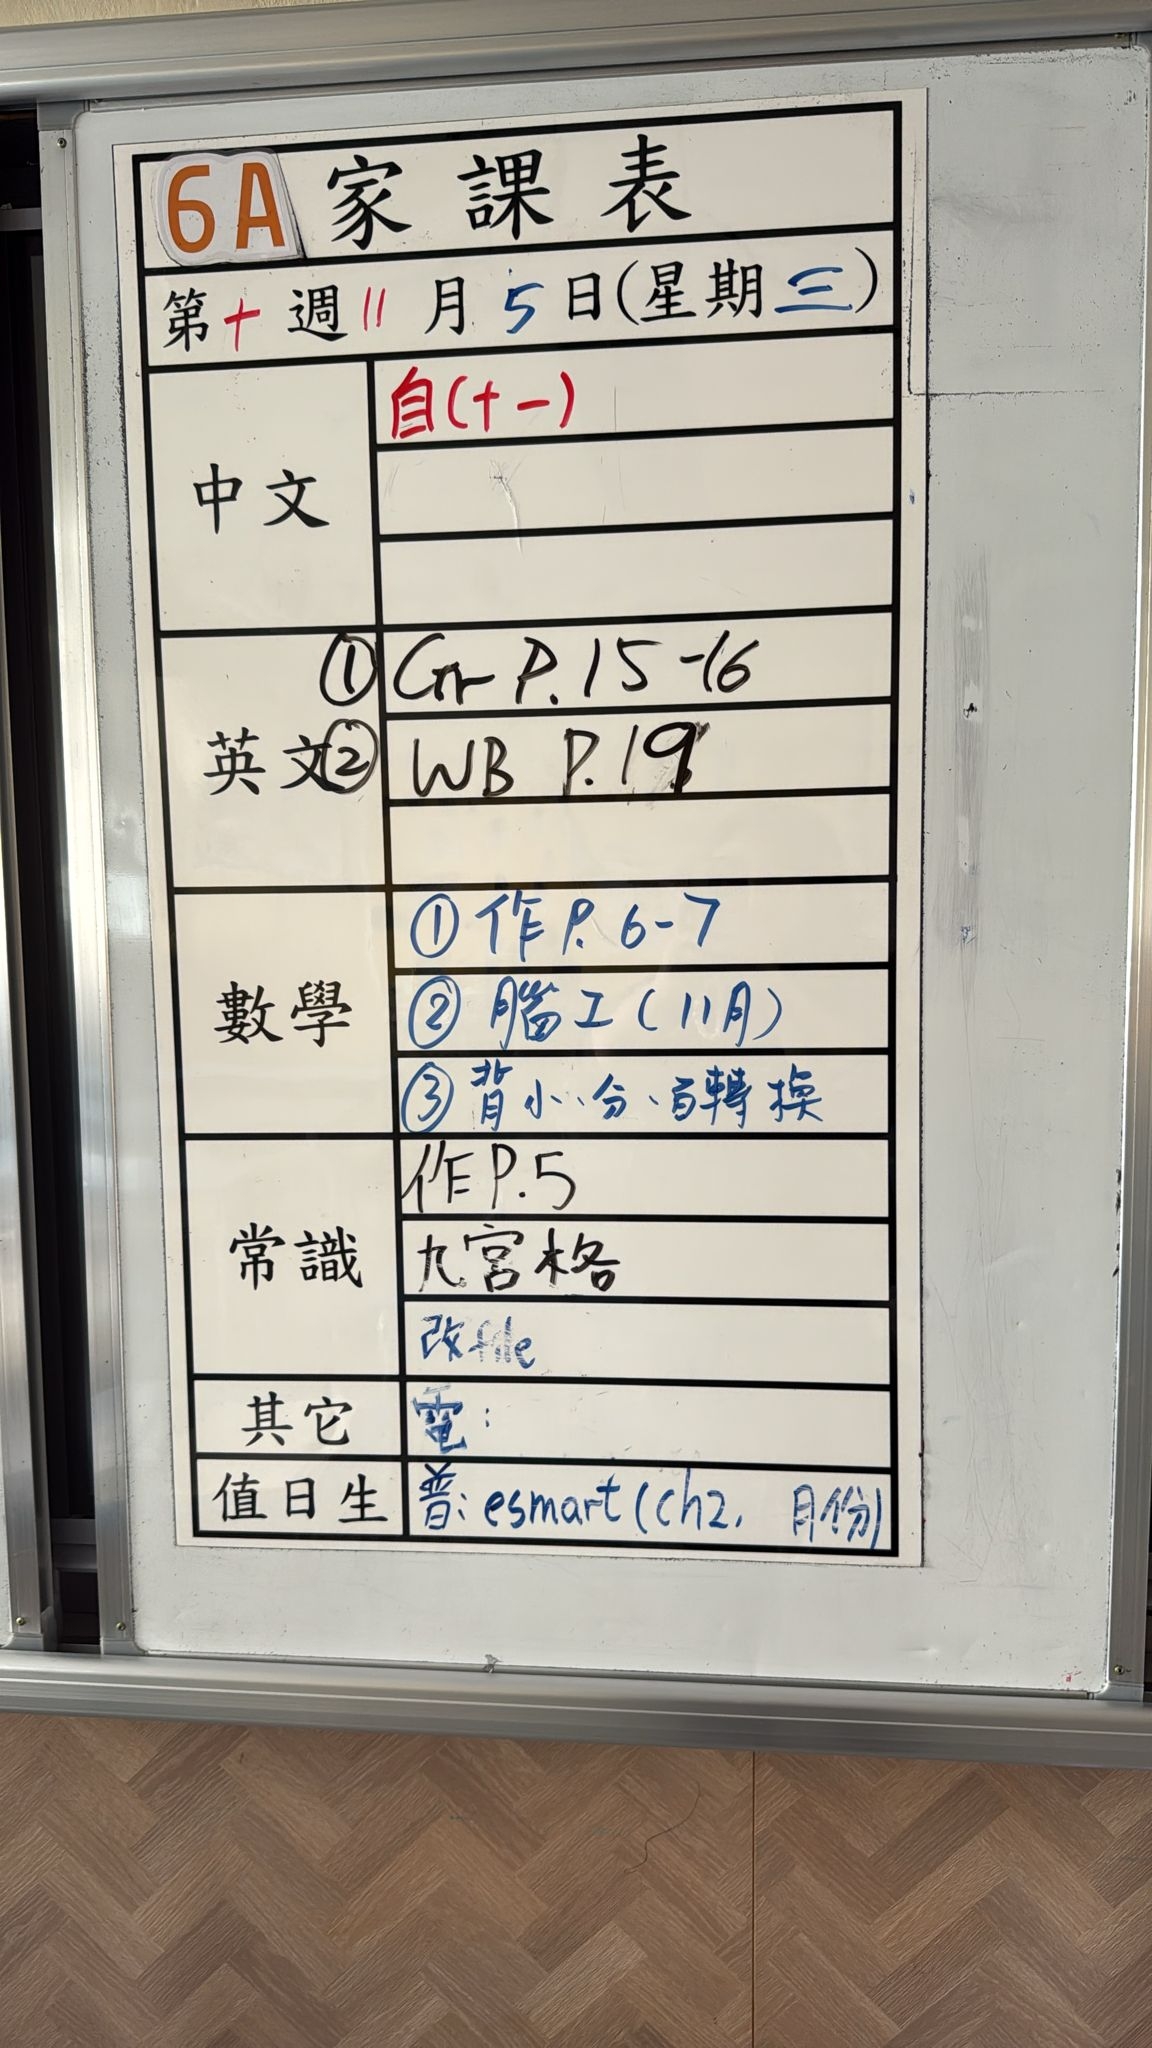 6A 家課表
第十週 11月5日(星期三)
中文
自(十一)
英文
① Gr P.15-16
② WB P.19
數學
① 作 P.6-7
② 腦工(11月)
③ 背小、分、百轉換
常識
作 P.5
九宮格
改file
其它
電:
值日生
普: esmart(ch2, 月份)